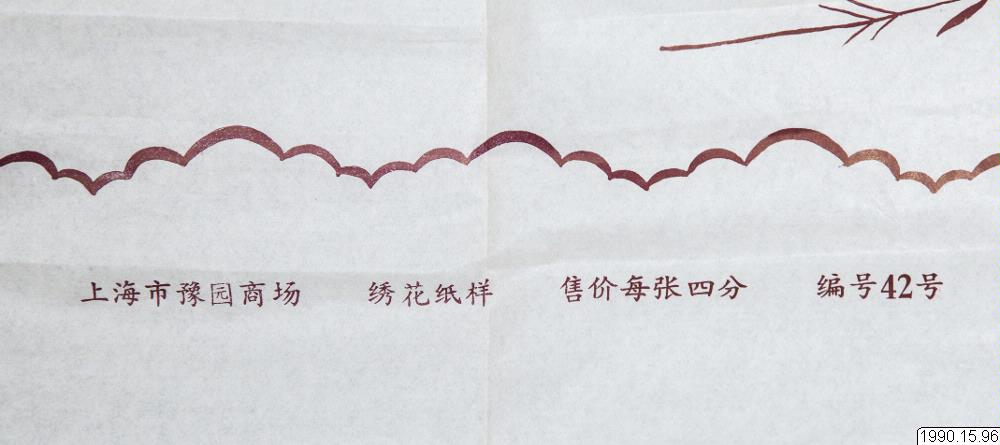 上海市豫园商场 绣花纸样 售价每张四分 编号42号
1990.15.96